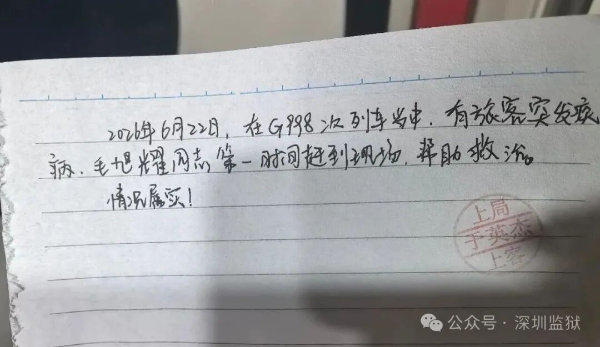 2026年6月22日,在G998次列车当中,有旅客突发疾
病,毛旭耀同志第一时间赶到现场,帮助救治。
情况属实!
上局
于英杰
上客
公众号·深圳监狱